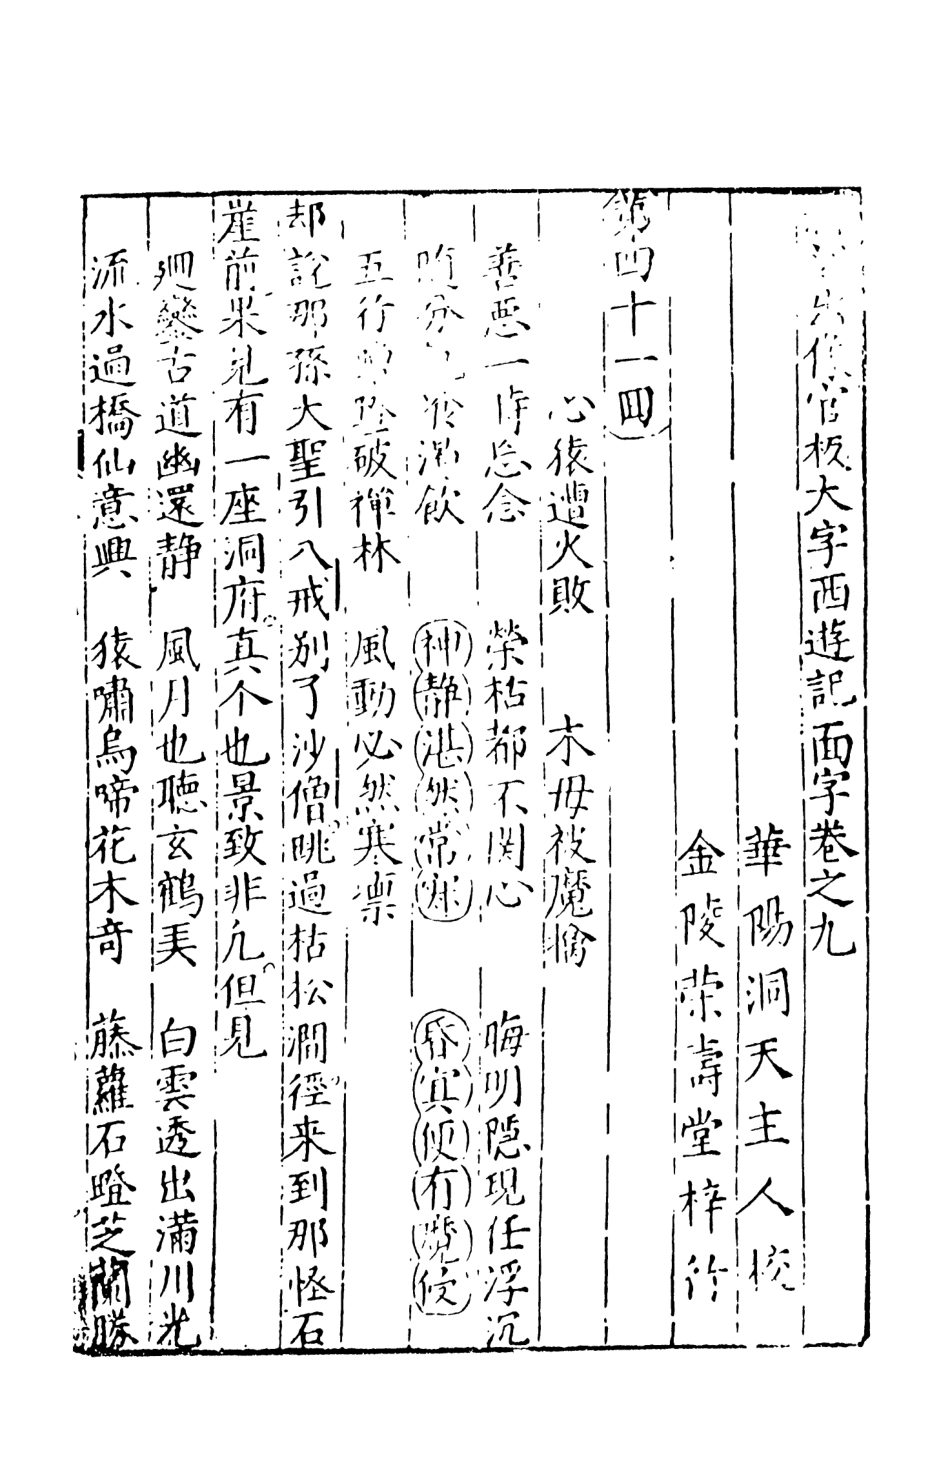 出像官板大字西遊記面字卷之九
華陽洞天主人校
金陵荣壽堂梓行
第四十一囬
心猿遭火敗　木母被魔擒
善惡一時忘念　榮枯都不関心　晦明隱現任浮沉
隨分飢飡渴飲　神静湛然常寂　昏冥便有魔侵
五行蹭蹬破禪林　風動必然寒凜
却說那孫大聖引八戒别了沙僧跳過枯松澗徑来到那怪石
崖前果見有一座洞府真个也景致非凢但見
廻鑾古道幽還静　風月也聴玄鶴美　白雲透出滿川光
流水過橋仙意興　猿嘯鳥啼花木奇　藤蘿石蹬芝蘭勝